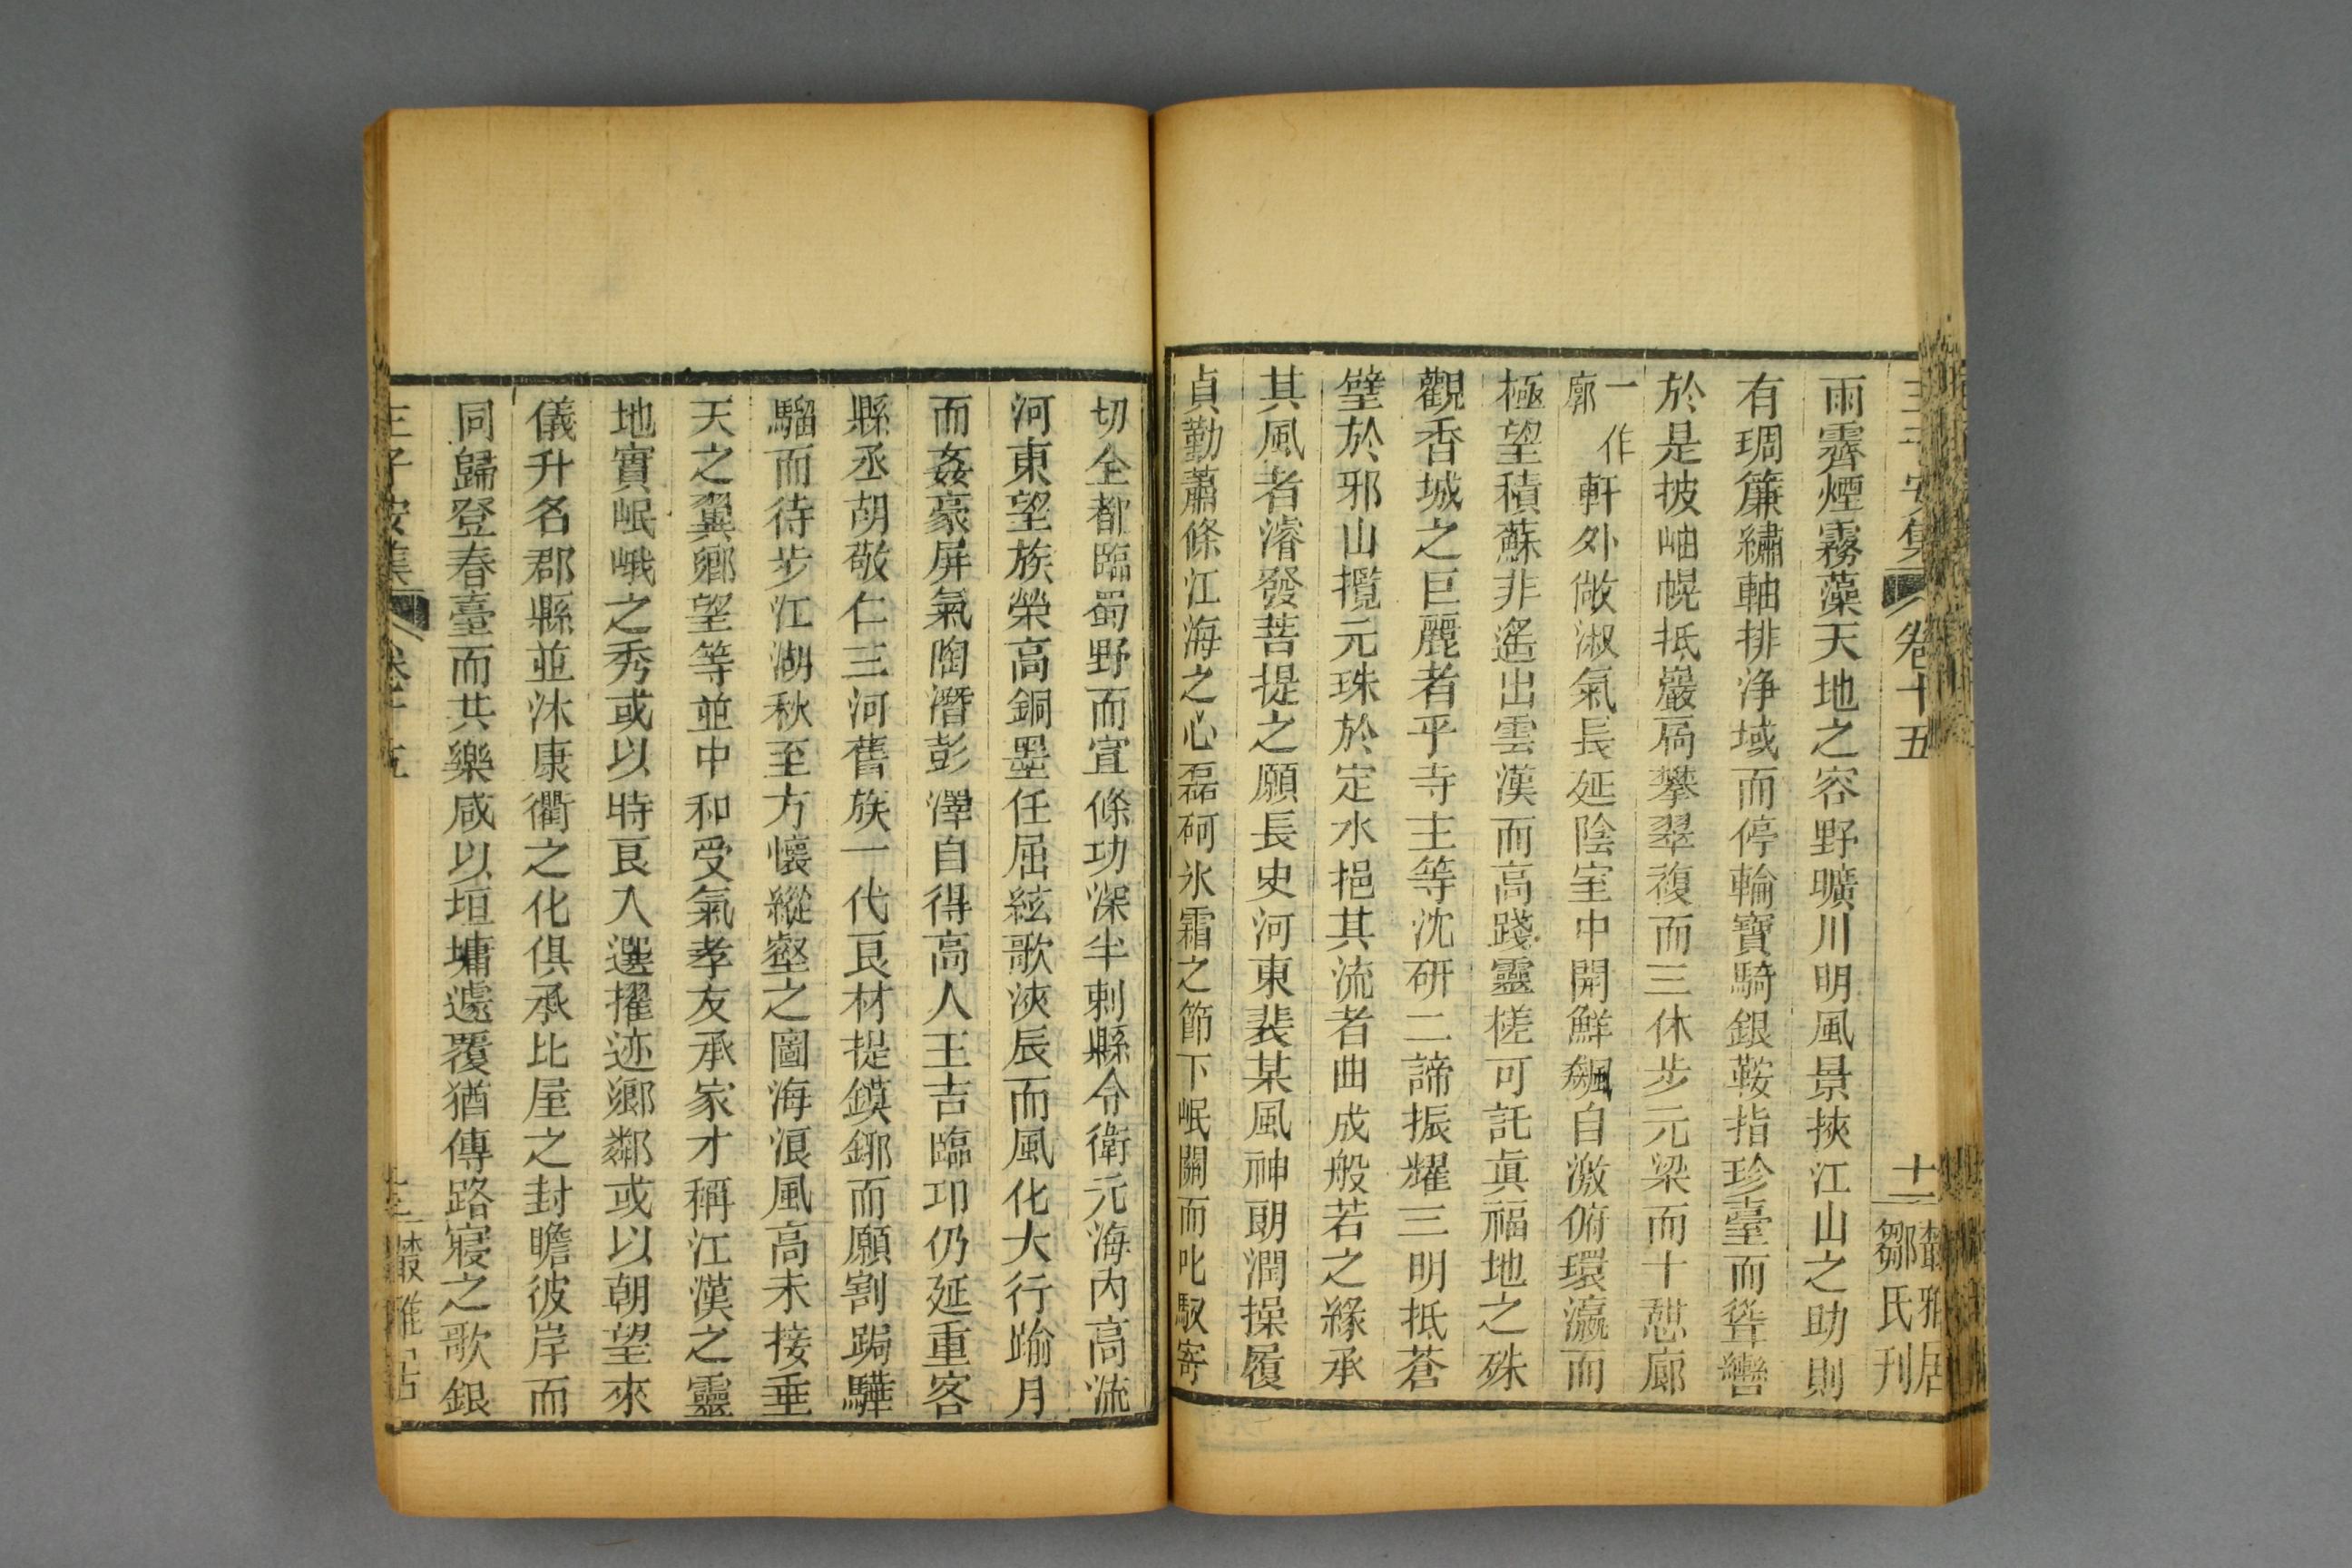 王子安集 卷十五 十一 叢雅居鄒氏刊
雨霽煙霧藻天地之容野曠川明風景挾江山之助則
有琱簾繡軸排淨域而停輪寶騎銀鞍指珍臺而聳轡
於是披岫幌抵巖扃攀翠複而三休步元梁而十憩廊
一作廓軒外敞淑氣長延陰室中開鮮飆自激俯環瀛而
極望積蘇非遙出雲漢而高踐靈槎可託眞福地之殊
觀香城之巨麗者乎寺主等沈研二諦振耀三明抵蒼
壁於邪山攬元珠於定水挹其流者曲成般若之緣承
其風者濬發菩提之願長史河東裴某風神朗潤操履
貞勤蕭條江海之心磊砢氷霜之節下岷關而叱馭寄
切全都臨蜀野而宣條功深半刺縣令衛元海内高流
河東望族榮高銅墨任屈絃歌浹辰而風化大行踰月
而姦豪屏氣陶潛彭澤自得高人王吉臨卭仍延重客
縣丞胡敬仁三河舊族一代良材提鏌鎁而願割跼驊
騮而待步江湖秋至方懷縱壑之圖海浪風高未接垂
天之翼鄉望等並中和受氣孝友承家才稱江漢之靈
地實岷峨之秀或以時良入選擢迹鄉鄰或以朝望來
儀升名郡縣並沐康衢之化俱承比屋之封瞻彼岸而
同歸登春臺而共樂咸以垣墉遽覆猶傳路寢之歌銀
王子安集 卷十五 叢雅居